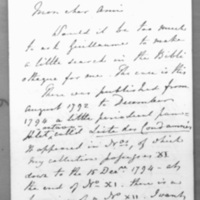 Mon cher ami
Would it be too much
to ask Guillaume to make
a little search in the Bibli
othèque for me. The case is this
There was published from
August 1792 to December
1794 a little periodical
called Liste des Condamnés
It appeared in Nos, of which
my collection XI
down to the 15 Decr. 1794 – at
the end of No XI. there is a
No XII.